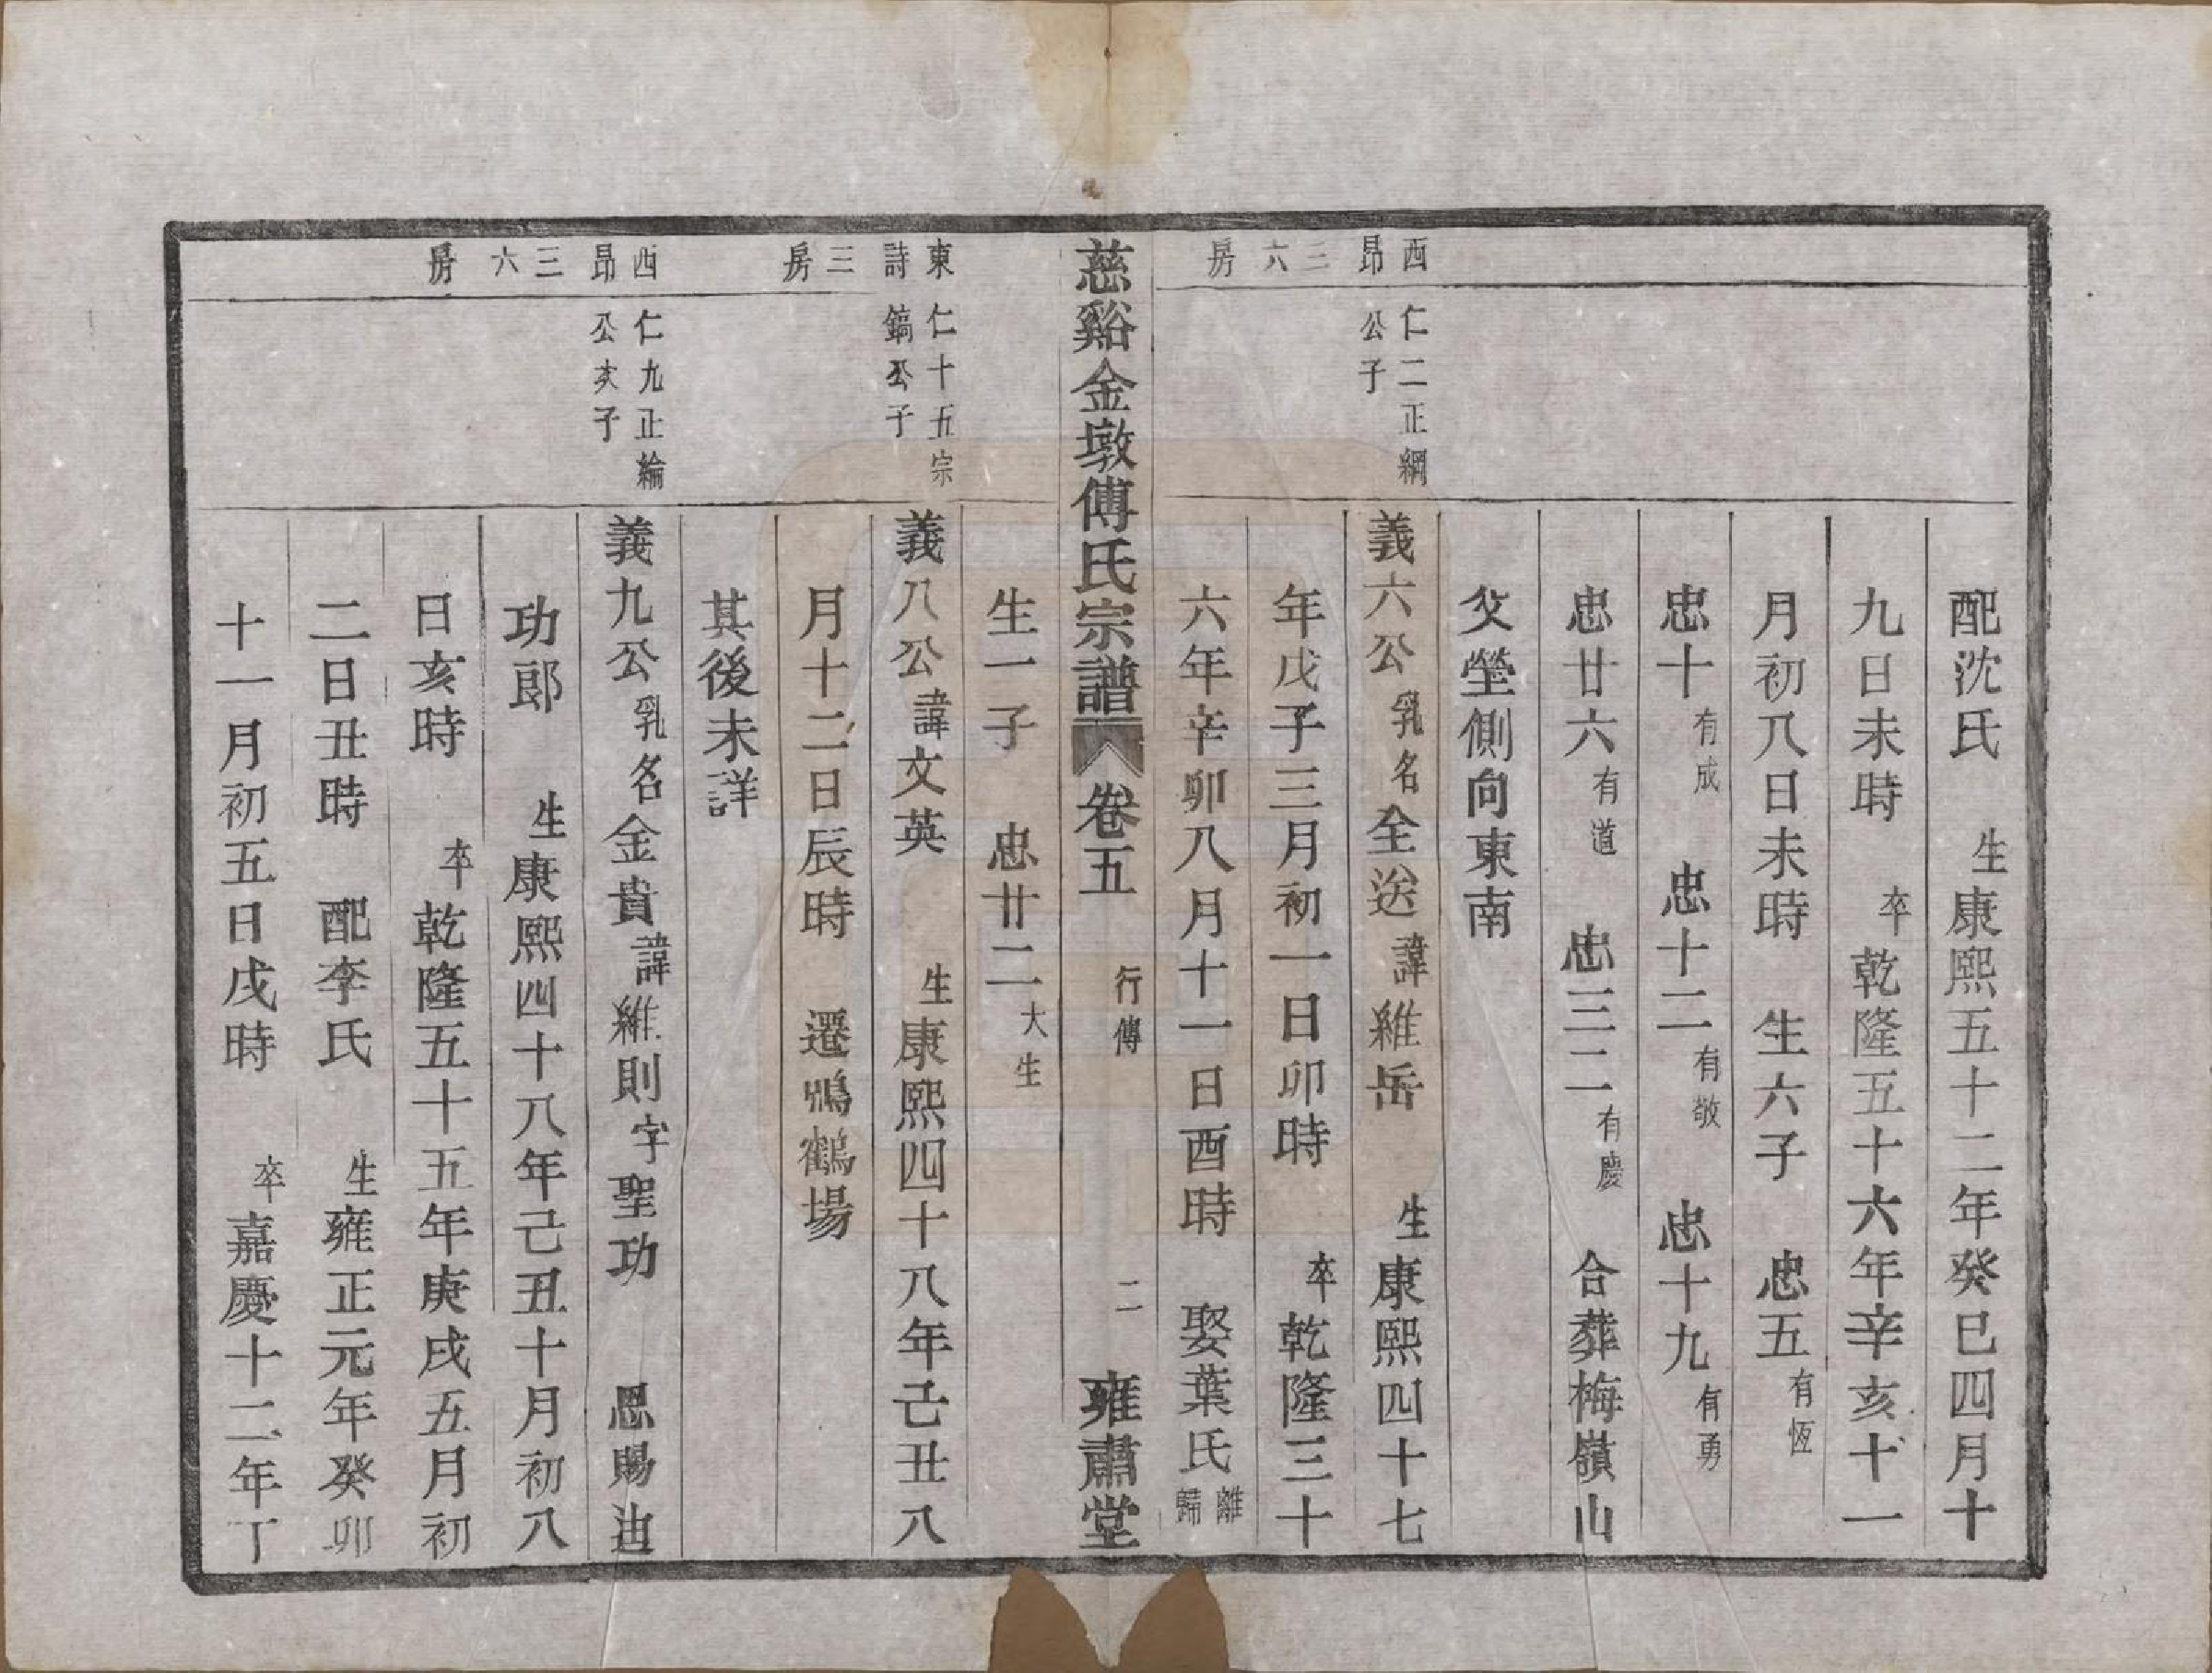 配沈氏　生康熙五十二年癸巳四月十
九日未時　卒乾隆五十六年辛亥十一
月初八日未時　生六子　忠五有恆
忠十有成　忠十二有敬　忠十九有勇
忠廿六有道　忠三二有慶　合葬梅嶺山
父塋側向東南
西昂三六房
仁二正綱公子
義六公乳名全送諱維岳　生康熙四十七
年戊子三月初一日卯時　卒乾隆三十
六年辛卯八月十一日酉時　娶葉氏離歸
慈谿金墩傅氏宗譜　卷五　行傳　二　雍肅堂
生一子　忠廿二大生
東詩三房
仁十五宗鎬公子
義八公諱文英　生康熙四十八年己丑八
月十二日辰時　遷鳴鶴場
其後未詳
西昂三六房
仁九正綸公次子
義九公乳名金貴諱維則字聖功　恩賜迪
功郎　生康熙四十八年己丑十月初八
日亥時　卒乾隆五十五年庚戌五月初
二日丑時　配李氏　生雍正元年癸卯
十一月初五日戌時　卒嘉慶十二年丁